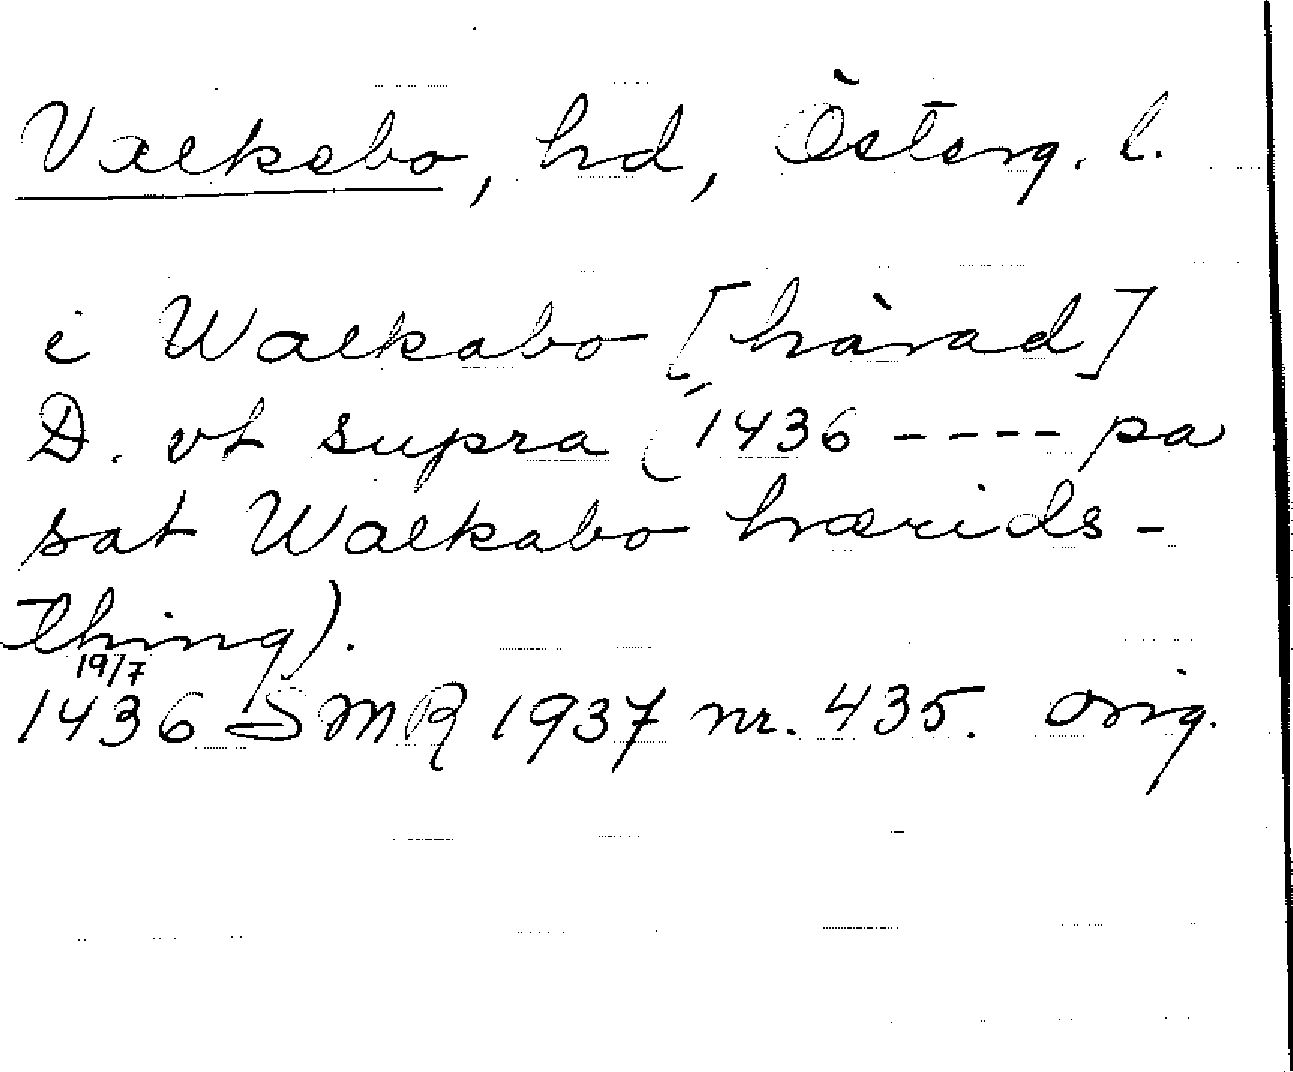 Valkebo, hd, Österg. l.
i Walkabo [härad]
D. vt supra (1436 ---- pa
sat Walkabo hærids-
thing).
19/7
1436 SMR 1937 nr. 435. Orig.